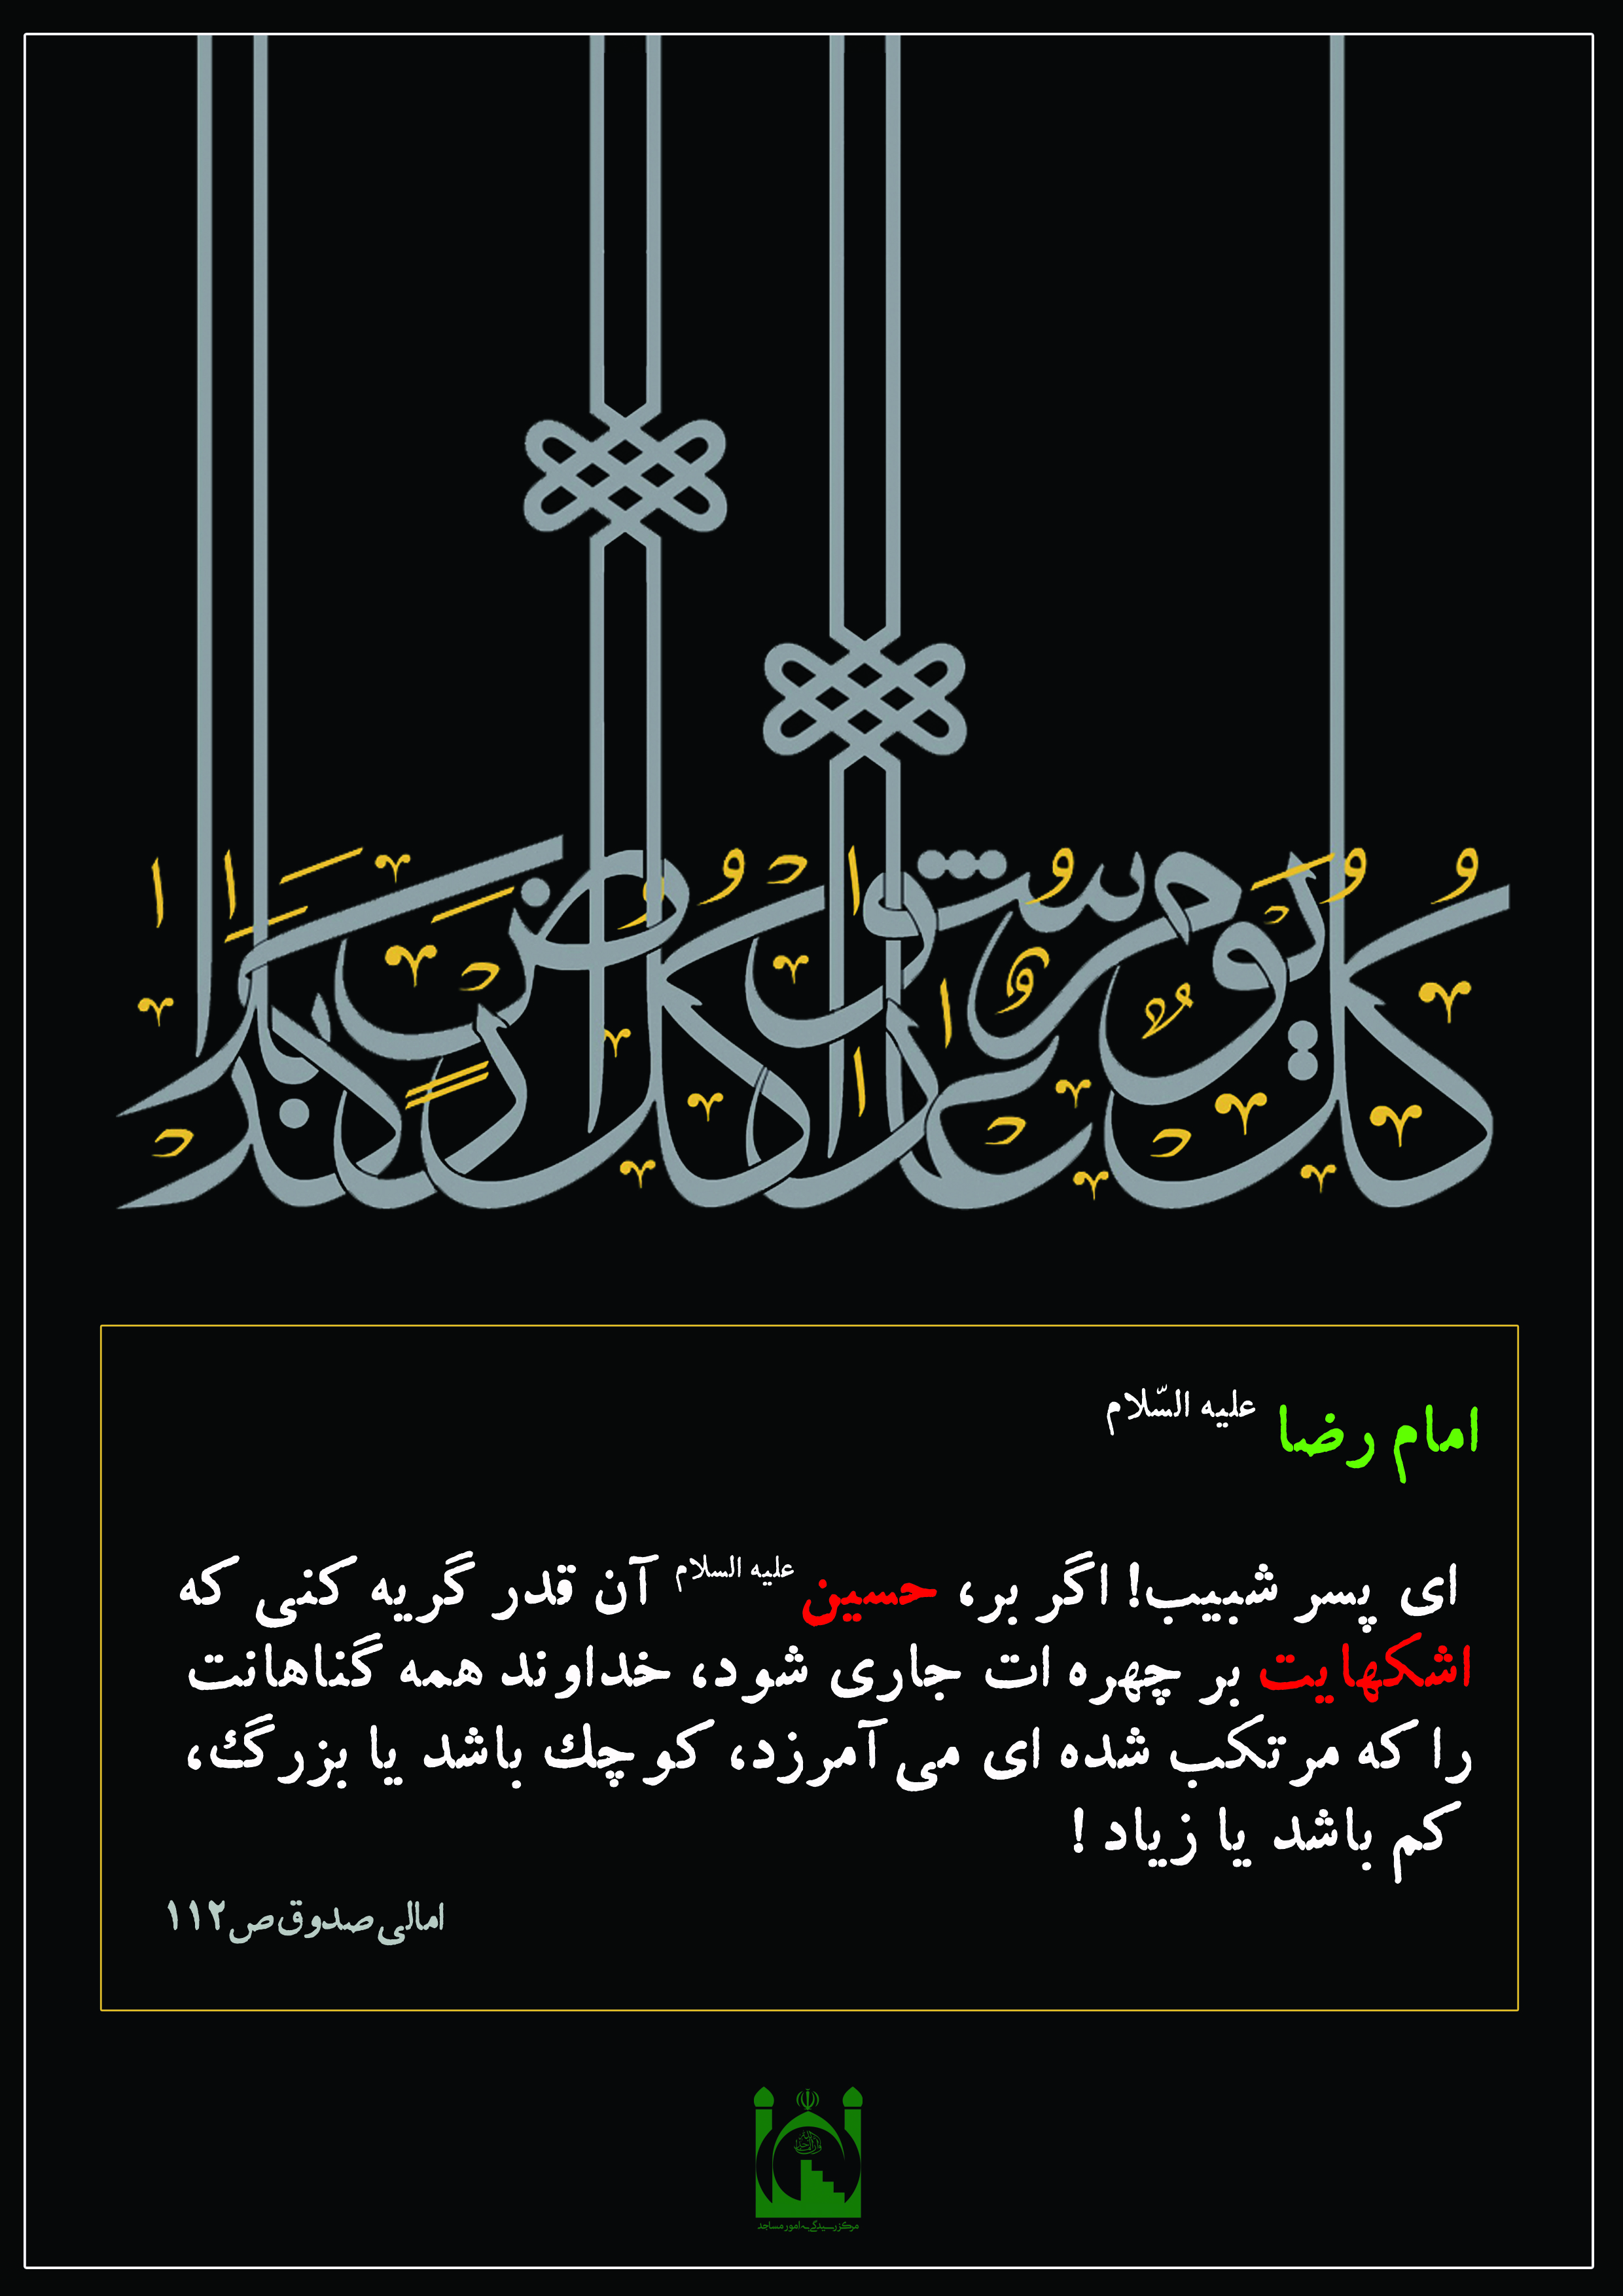 كل يوم عاشوراء كل أرض كربلا
امام رضا علیه السّلام
ای پسر شبیب! اگر بر، حسین علیه السلام آن قدر گریه کنی که
اشکهایت بر چهره ات جاری شود، خداوند همه گناهانت
را که مرتکب شده ای می آمرزد، کوچك باشد یا بزرگ،
کم باشد یا زیاد !
امالی صدوق ص۱۱۲
مرکز رسیدگی به امور مساجد